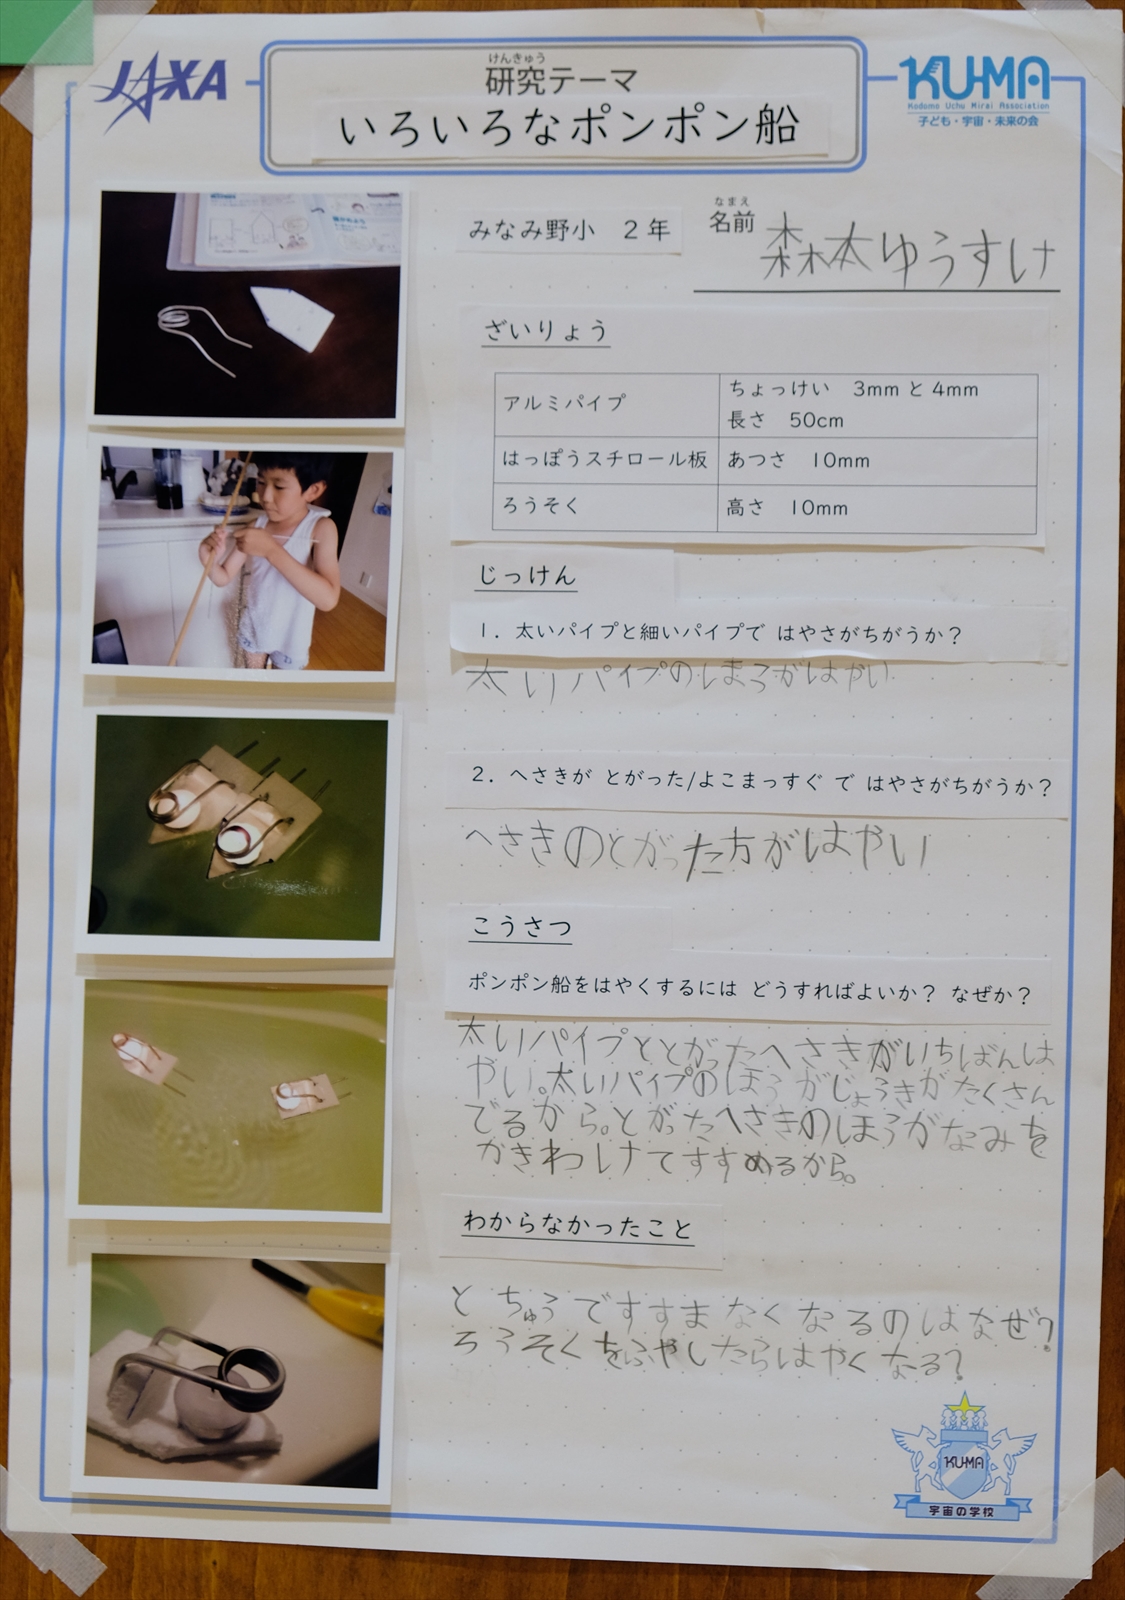 JAXA
けんきゅう
研究テーマ
いろいろなポンポン船
KU-MA
Kodomo Uchu Mirai Association
子ども・宇宙・未来の会
みなみ野小 2年
なまえ
名前
森本ゆうすけ
ざいりょう
アルミパイプ
ちょっけい 3mmと4mm
長さ 50cm
はっぽうスチロール板
あつさ 10mm
ろうそく
高さ 10mm
じっけん
1. 太いパイプと細いパイプで はやさがちがうか?
太いパイプのほうがはやい
2. へさきが とがった/よこまっすぐ で はやさがちがうか?
へさきのとがった方がはやい
こうさつ
ポンポン船をはやくするには どうすればよいか? なぜか?
太いパイプととがったへさきがいちばんは
やい。太いパイプのほうがじょうきがたくさん
でるから。とがったへさきのほうがなみを
かきわけてすすめるから。
わからなかったこと
とちゅうですすまなくなるのはなぜ?
ろうそくをふやしたらはやくなる?
KU-MA
宇宙の学校